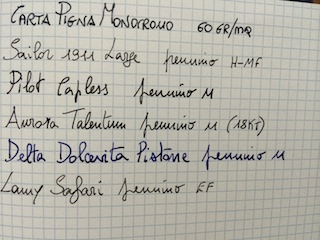 CARTA PIGNA MONOCROMO 60 GR/MQ
Sailor 1911 Large pennino H-MF
Pilot Capless pennino M
Aurora Talentum pennino M (18KT)
Delta Dolcevita Pistone pennino M
Lamy Safari pennino EF